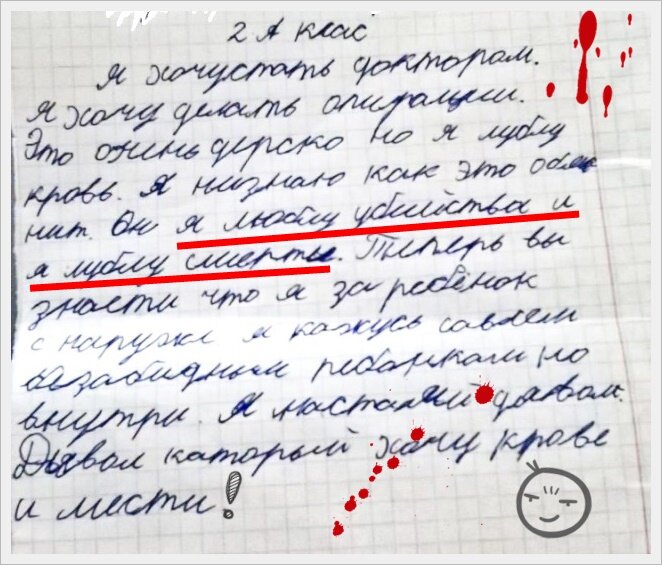 2 А клас
Я хочустать доктором.
Я хочу делать опирацыи.
Это очень дерско но я лублу
кровь. Я низнаю как это обяс
нит. Он я люблу убийства и
я лублу смерть. Типерь вы
знаети что я за ребёнок
с наружи я кажусь савсем
безабидным рибёнкам но
внутри. Я настаяший дявол.
Дявол каторый хочу крове
и мести!